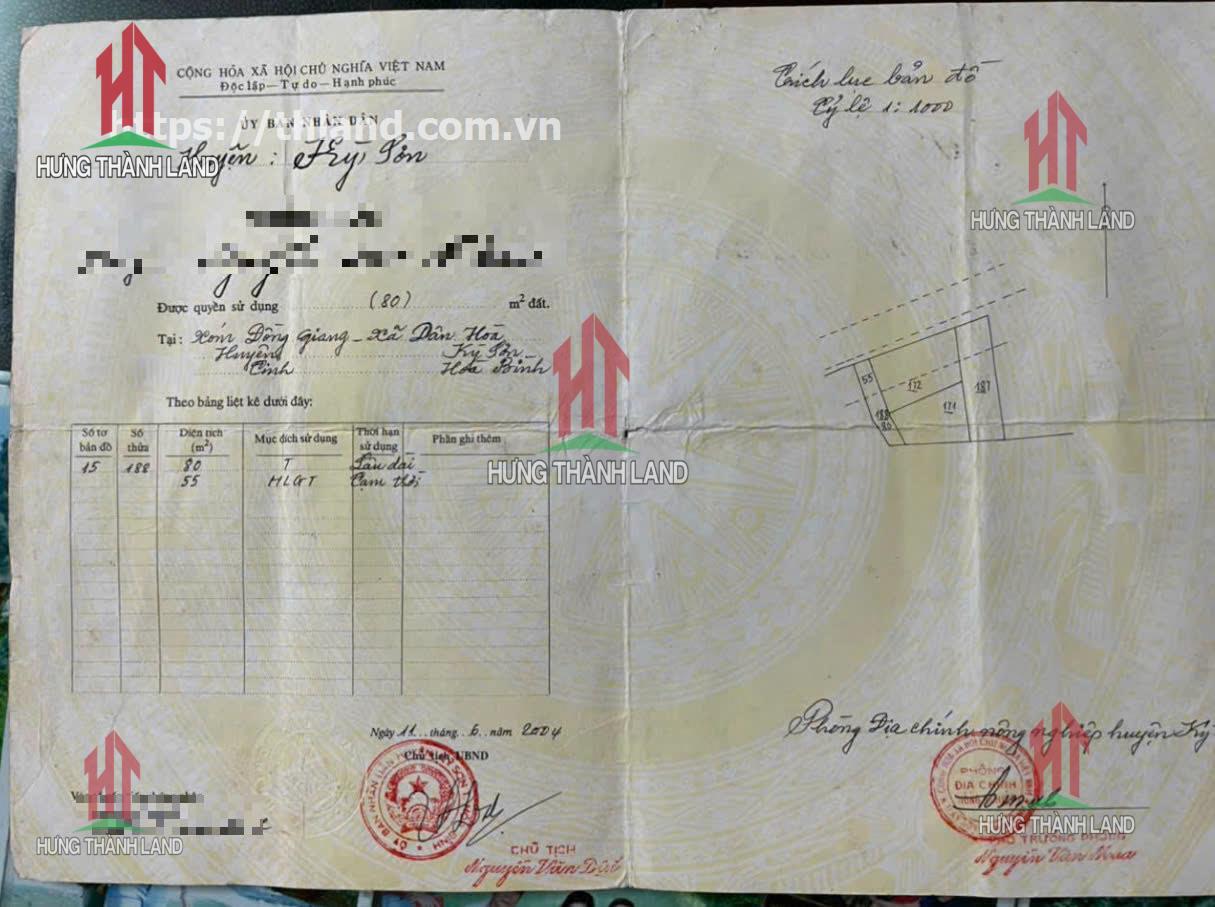 CỘNG HÒA XÃ HỘI CHỦ NGHĨA VIỆT NAM
Độc lập—Tự do—Hạnh phúc
ỦY BAN NHÂN DÂN
https://thland.com.vn
Huyện : Kỳ Sơn
HƯNG THÀNH LAND
Được quyền sử dụng (80) m² đất.
Tại: Xóm Đồng Giang - Xã Dân Hoà
Huyện Kỳ Sơn
Tỉnh Hoà Bình
Theo bảng liệt kê dưới đây:
Số tờ bản đồ Số thửa Diện tích (m²) Mục đích sử dụng Thời hạn sử dụng Phần ghi thêm
15 188 80 T Lâu dài
55 HLGT Tạm thời
HƯNG THÀNH LAND
Ngày 11 tháng 6 năm 2004
Chủ tịch UBND
HƯNG THÀNH LAND
CHỦ TỊCH
Nguyễn Văn
Trích lục bản đồ
Tỷ lệ 1:1000
HƯNG THÀNH LAND
55
172
187
171
188
80
Phòng Địa chính nông nghiệp huyện Kỳ
PHÒNG
ĐỊA CHÍNH
HƯNG THÀNH LAND
PHÓ TRƯỞNG PHÒNG
Nguyễn Văn